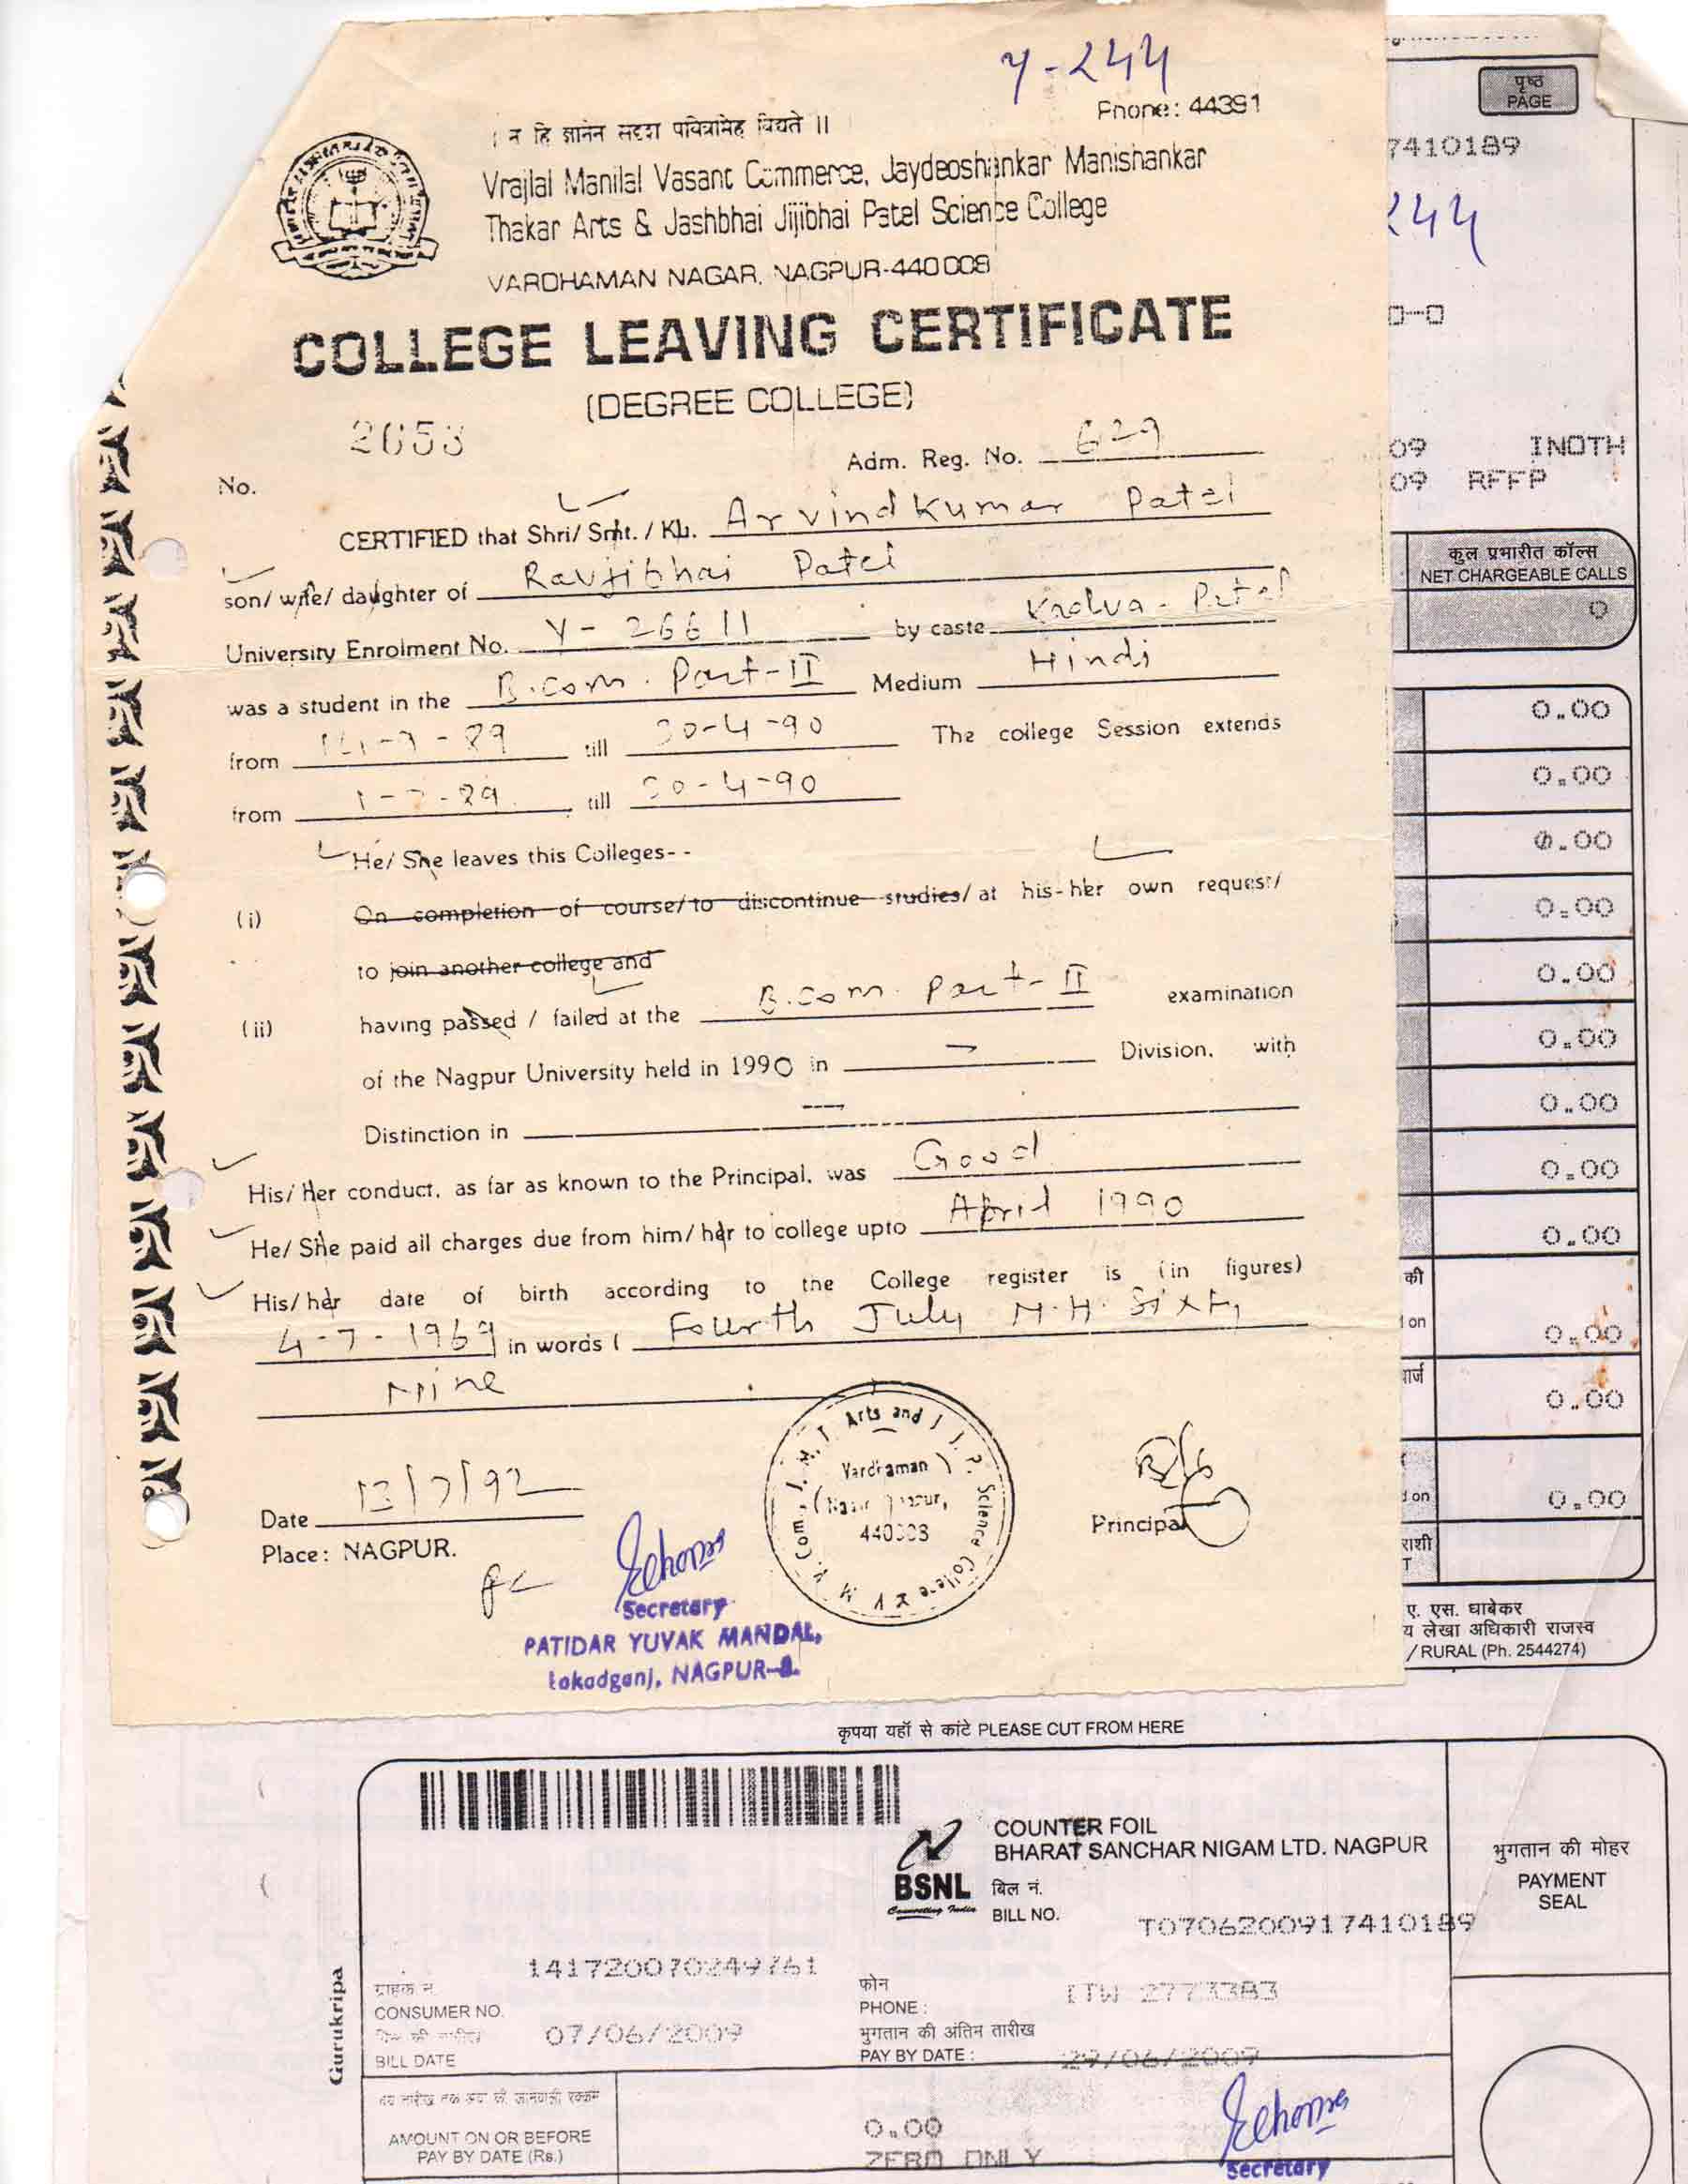 Y-244
Phone: 44391
। न हि ज्ञानेन सदृश पवित्रमिह विद्यते ॥
Vrajlal Manilal Vasant Commerce, Jaydeoshankar Manishankar
Thakar Arts & Jashbhai Jijibhai Patel Science College
VARDHAMAN NAGAR, NAGPUR-440 008
COLLEGE LEAVING CERTIFICATE
(DEGREE COLLEGE)
No. 2653
Adm. Reg. No. 629
CERTIFIED that Shri/ Smt. / Ku. Arvindkumar Patel
son/ wife/ daughter of Ravjibhai Patel
University Enrolment No. Y-26611 by caste Kadva-Patel
was a student in the B.com. Part-II Medium Hindi
from till 30-4-90 The college Session extends
from 1-7-89 till 30-4-90
He/ She leaves this Colleges--
(i) On completion of course/to discontinue studies/ at his-her own request/
to join another college and
(ii) having passed / failed at the B.com. Part-II examination
of the Nagpur University held in 1990 in — Division, with
Distinction in —
His/ Her conduct, as far as known to the Principal, was Good
He/ She paid all charges due from him/ her to college upto April 1990
His/ her date of birth according to the College register is (in figures)
4-7-1969 in words ( Fourth July N.H. Sixty
Nine
Date 13/7/92
Place: NAGPUR.
Principal
V. M. V. Com., J. M. T. Arts and J. J. P. Science College
Vardhaman
Nagar
440008
Secretary
PATIDAR YUVAK MANDAL,
Lakadganj, NAGPUR-8.
पृष्ठ
PAGE
7410189
244
0-0
09 INOTH
09 RFFP
कुल प्रभारीत कॉल्स
NET CHARGEABLE CALLS
0
0.00
0.00
0.00
0.00
0.00
0.00
0.00
0.00
0.00
की
on
0.00
चार्ज
0.00
on
0.00
राशी
T
ए. एस. घाबेकर
य लेखा अधिकारी राजस्व
/ RURAL (Ph. 2544274)
कृपया यहाँ से कांटे PLEASE CUT FROM HERE
COUNTER FOIL
BHARAT SANCHAR NIGAM LTD. NAGPUR
BSNL
Connecting India
बिल नं.
BILL NO. T0706200917410189
भुगतान की मोहर
PAYMENT
SEAL
Gurukripa
ग्राहक नं.
CONSUMER NO. 141720070249761
फोन
PHONE : ITW 2773383
बिल की तारीख
BILL DATE 07/06/2009
भुगतान की अंतिम तारीख
PAY BY DATE : 29/06/2009
AMOUNT ON OR BEFORE
PAY BY DATE (Rs.)
0.00
ZERO ONLY
Secretary